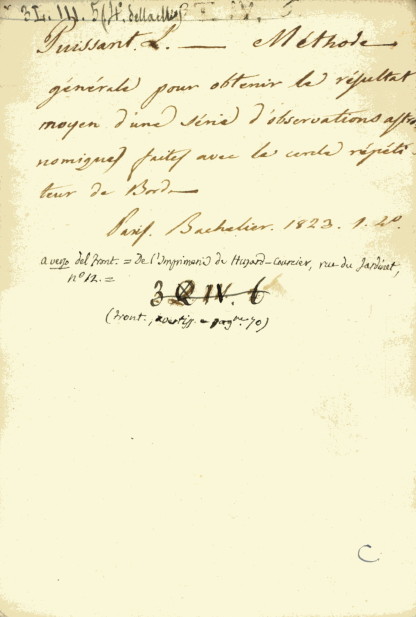 3L. IV. 5 (4°. della
Puissant. L. — Méthode
générale pour obtenir le résultat
moyen d'une série d'observations astro
nomiques faites avec le cercle répéti-
teur de Borda
Paris. Bachelier. 1823. 1. 4°.
a verso del Front. = De l'Imprimerie de Huzard-Courcier, rue du Jardinet,
n° 12. =
3 Q IV. 6
(Front., avertiss. e pagne 70)
C